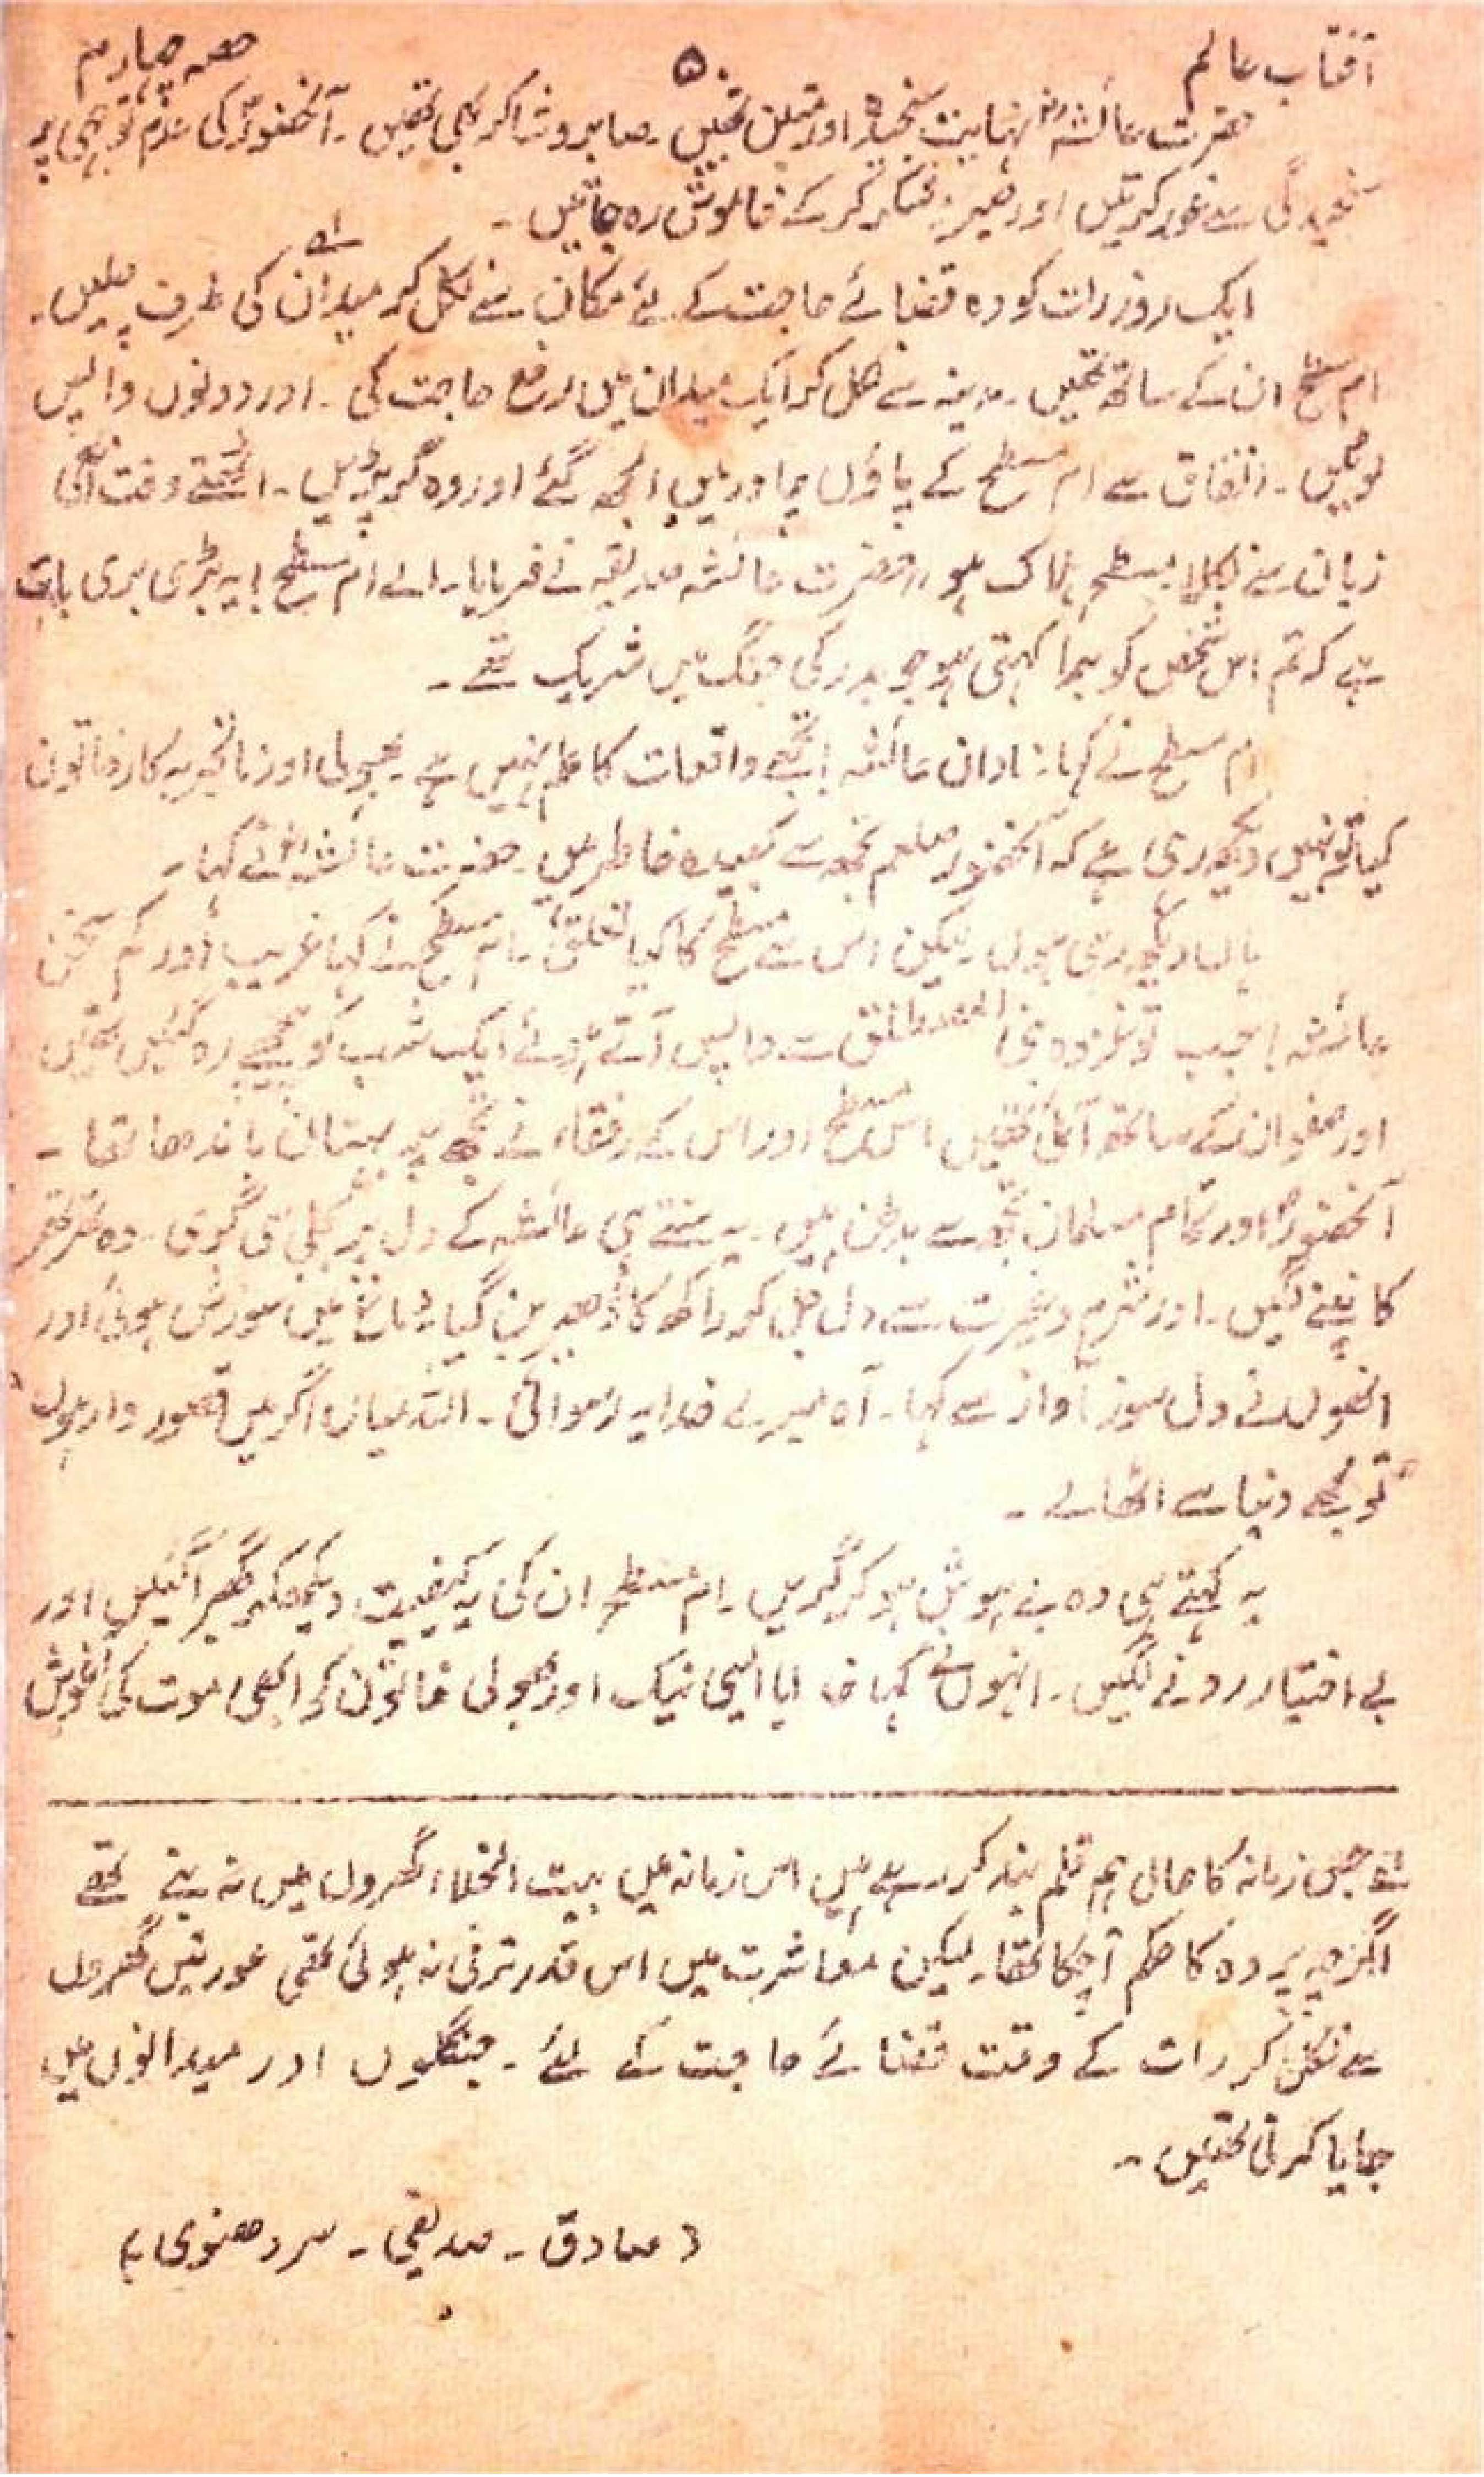 آفتاب عالم ۵۰ حصہ چہارم
حضرت عائشہؓ نہایت سنجیدہ اور متین تھیں۔ صابر و شاکر بھی تھیں۔ آنحضورؐ کی عدم توجہی پر
سنجیدگی سے غور کرتیں اور صبر کر کے خاموش رہ جاتیں۔
ایک روز رات کو وہ قضائے حاجت کے لئے مکان سے نکل کر میدان کی طرف چلیں۔ ۱؎
ام مسطح ان کے ساتھ تھیں۔ مدینہ سے نکل کر ایک میدان میں رفع حاجت کی۔ اور دونوں واپس
لوٹیں۔ اتفاق سے ام مسطح کے پاؤں چادر میں الجھ گئے اور وہ گر پڑیں۔ اٹھتے وقت انکی
زبان سے نکلا۔ مسطح ہلاک ہو،، حضرت عائشہ صدیقہ نے فرمایا۔ اے ام مسطح! یہ بڑی بری بات
ہے کہ تم اس شخص کو برا کہتی ہو جو بدر کی جنگ میں شریک تھے۔
ام مسطح نے کہا: نادان عائشہ! تجھے واقعات کا علم نہیں ہے۔ بھولی اور ناتجربہ کار خاتون
کیا تو نہیں دیکھ رہی ہے کہ آنحضور صلعم تجھ سے کبیدہ خاطر ہیں۔ حضرت عائشہؓ نے کہا۔
ہاں دیکھ رہی ہوں۔ لیکن اس سے مسطح کا کیا تعلق،، ام مسطح نے کہا غریب اور کم سخن
عائشہ! جب تو غزوہ بنی المصطلق سے واپس آتے ہوئے ایک شب کو پیچھے رہ گئیں تھیں
اور صفوان کے ساتھ آئی تھیں اس مسطح اور اس کے رفقاء نے تجھ پر بہتان باندھا تھا۔
آنحضورؐ اور تمام مسلمان تجھ سے بدظن ہیں۔ یہ سنتے ہی عائشہ کے دل پر بجلی سی گری۔ وہ تھر تھر
کانپنے لگیں۔ اور شرم و غیرت سے دل جل کر راکھ کا ڈھیر بن گیا۔ دماغ میں سوزش ہوئی اور
انھوں نے دل سوز آواز سے کہا۔ آہ میرے خدا یہ رسوائی۔ اللہ میاں اگر میں قصور وار ہوں
تو مجھے دنیا سے اٹھا لے۔
یہ کہتے ہی وہ بے ہوش ہو کر گریں۔ ام مسطح ان کی یہ کیفیت دیکھکر گھبرا گئیں اور
بے اختیار رونے لگیں۔ انہوں نے کہا خدایا ایسی نیک اور بھولی خاتون کو ابھی موت کی آغوش
۱؎ جس زمانہ کا حال ہم قلم بند کر رہے ہیں اس زمانہ میں بیت الخلاء گھروں میں نہ بنے تھے
اگرچہ پردہ کا حکم آچکا تھا۔ لیکن معاشرت میں اس قدر ترقی نہ ہوئی تھی عورتیں گھروں
سے نکل کر رات کے وقت قضائے حاجت کے لئے۔ جنگلوں اور میدانوں میں
جایا کرتی تھیں۔
(صادق۔ صدیقی۔ سردھنوی)